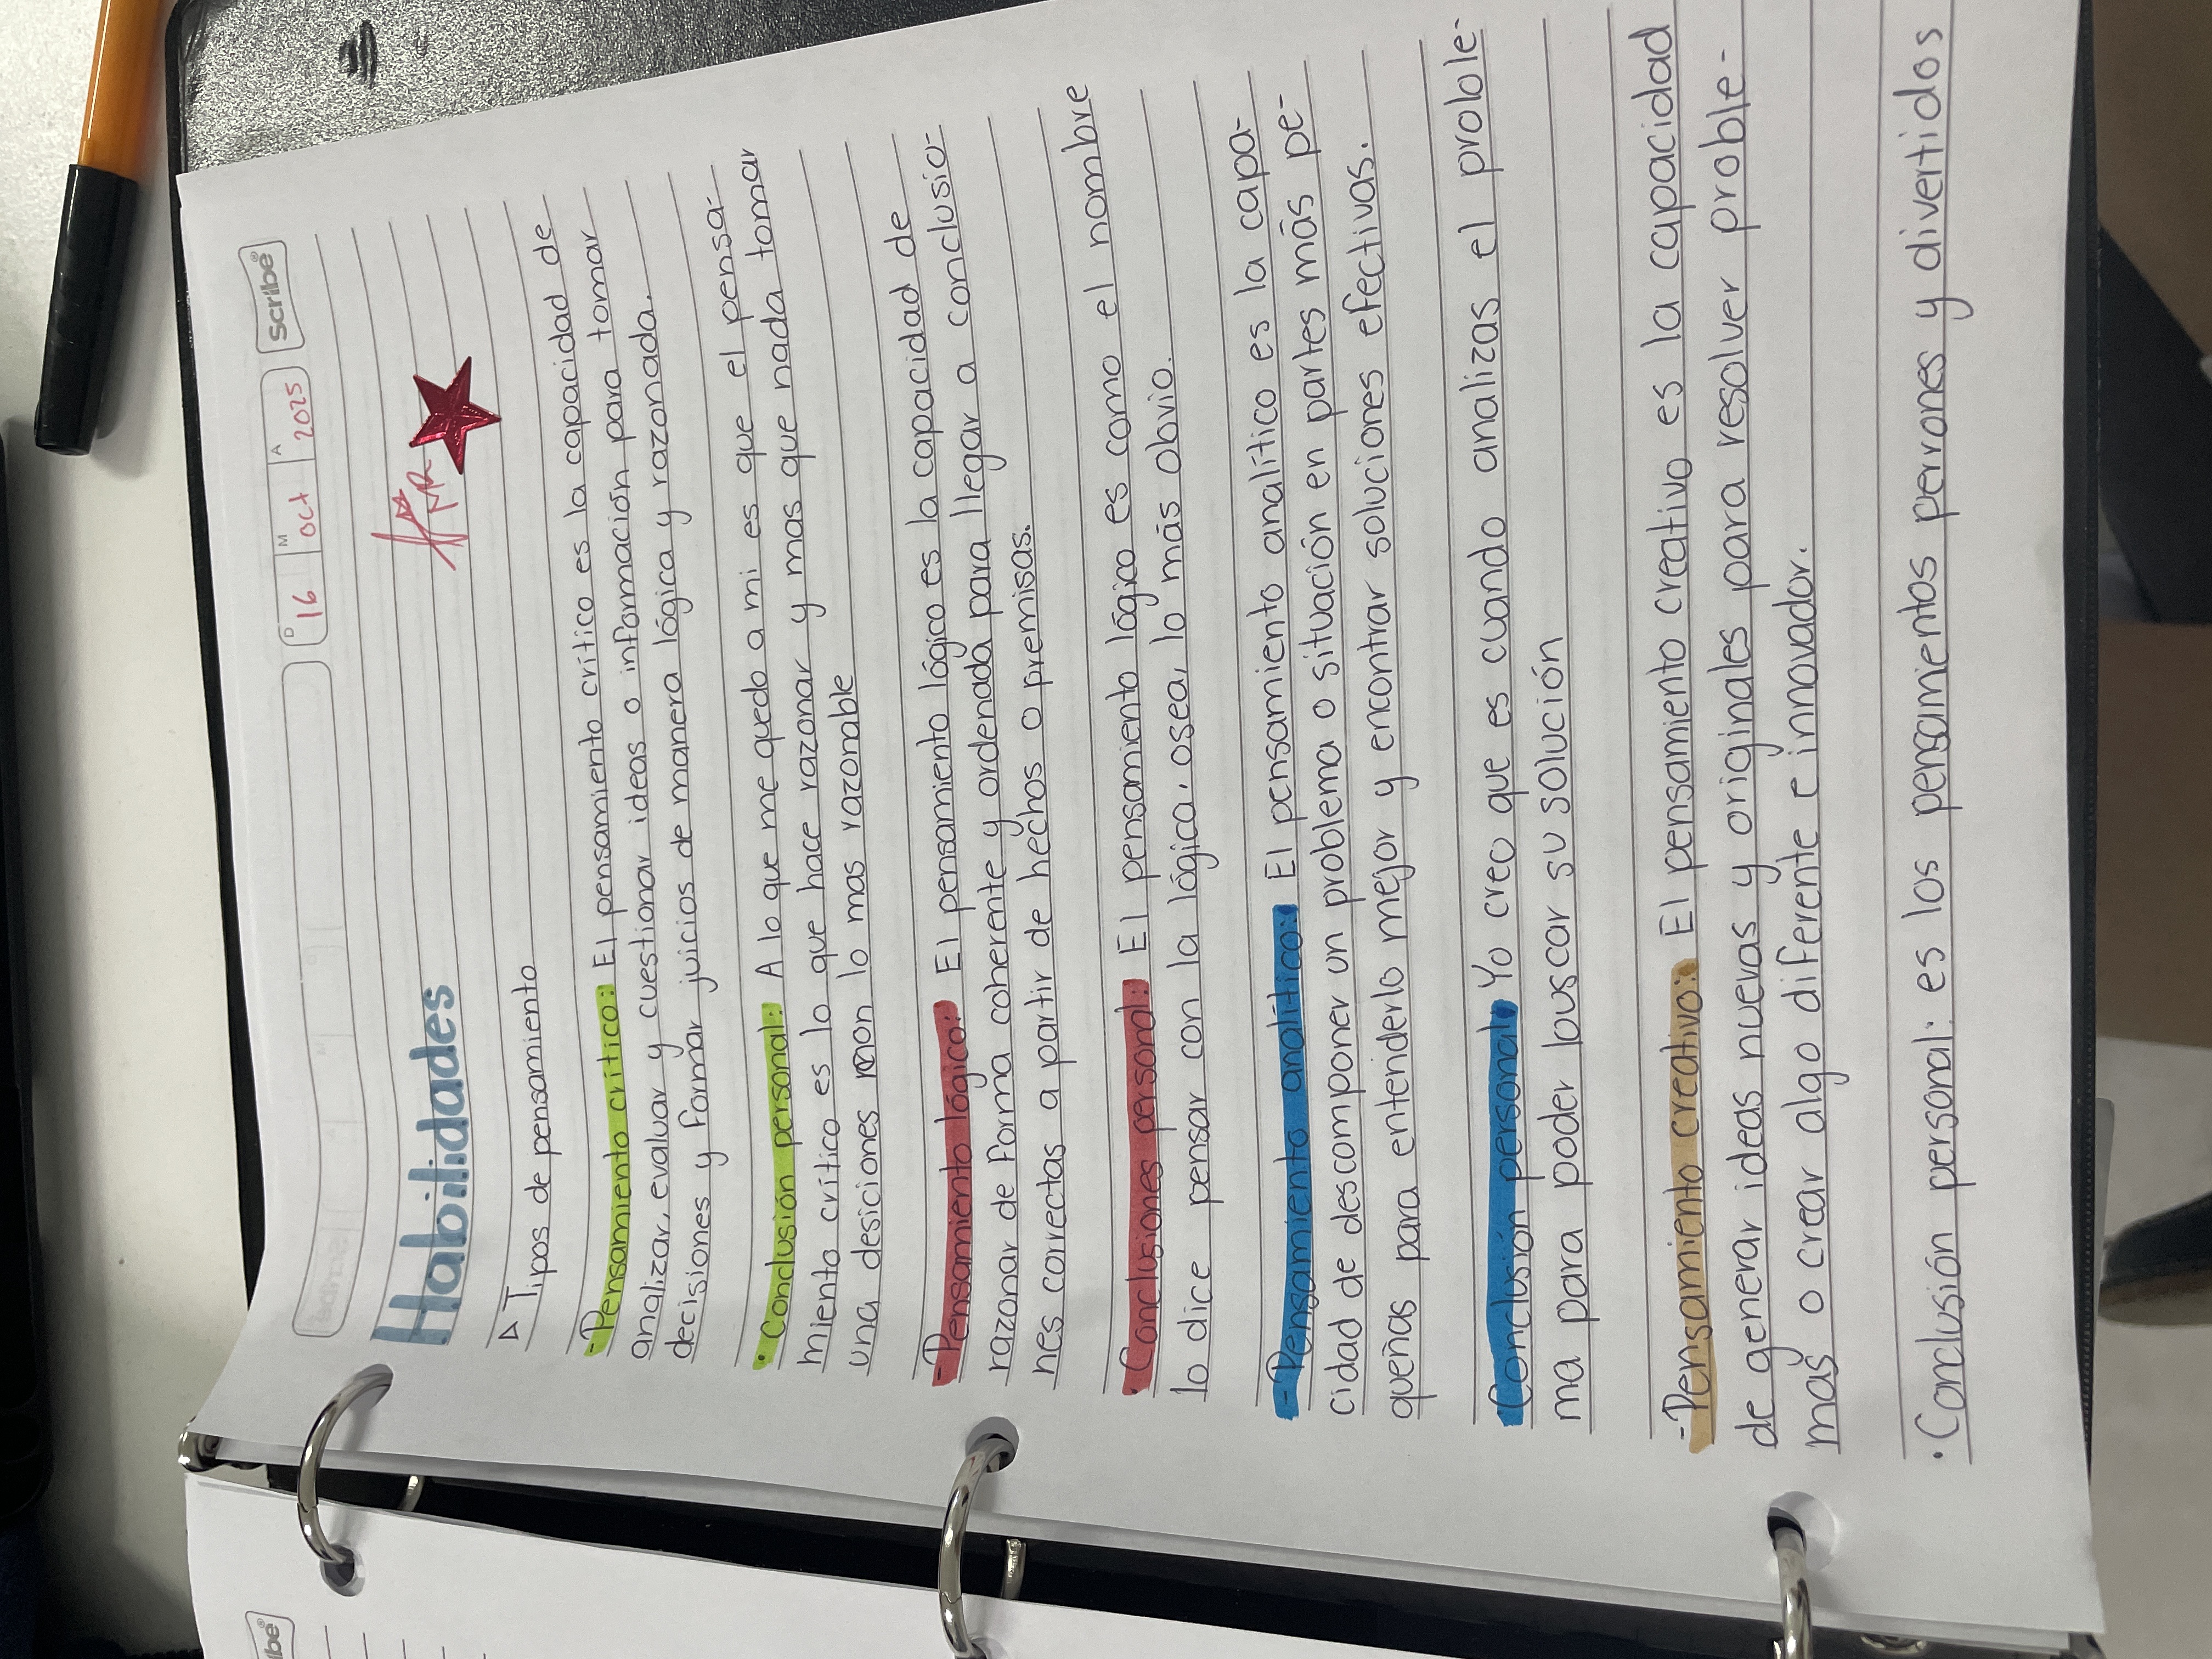 D M A
16 oct 2025 Scribe®
Habilidades
▷ Tipos de pensamiento
- Pensamiento crítico: El pensamiento crítico es la capacidad de
analizar, evaluar y cuestionar ideas o información para tomar
decisiones y formar juicios de manera lógica y razonada.
• Conclusión personal: A lo que me quedo a mi es que el pensa-
miento crítico es lo que hace razonar y mas que nada tomar
una desiciones lo mas razonable
- Pensamiento lógico: El pensamiento lógico es la capacidad de
razonar de forma coherente y ordenada para llegar a conclusio-
nes correctas a partir de hechos o premisas.
• Conclusiones personal: El pensamiento lógico es como el nombre
lo dice pensar con la lógica. osea, lo más obvio.
- Pensamiento analítico: El pensamiento analítico es la capa-
cidad de descomponer un problema o situación en partes más pe-
queñas para entenderlo mejor y encontrar soluciones efectivas.
• Conclusión personal: Yo creo que es cuando analizas el proble-
ma para poder buscar su solución
- Pensamiento creativo: El pensamiento creativo es la capacidad
de generar ideas nuevas y originales para resolver proble-
mas o crear algo diferente e innovador.
• Conclusión personal: es los pensamientos perrones y divertidos